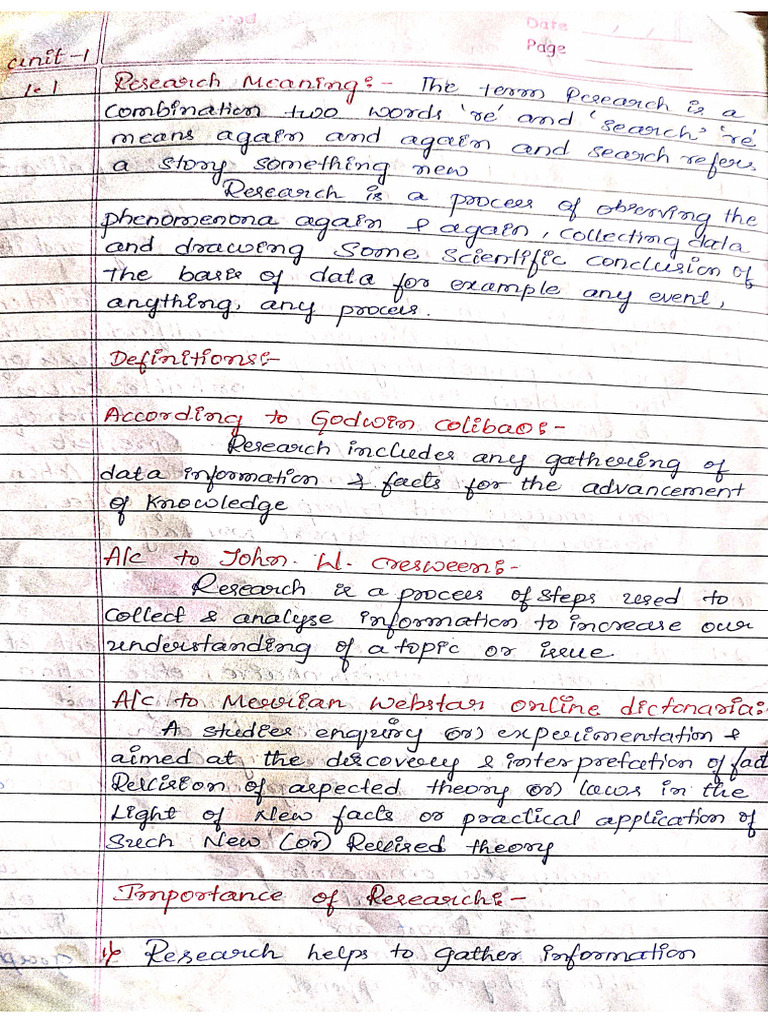 Date / /
Page
unit-1
1.1 Research Meaning:- The term Research is a
combination two words 're' and 'search' 're'
means again and again and search refers
a story something new
Research is a process of observing the
phenomenona again & again, collecting data
and drawing some scientific conclusion of
the basis of data for example any event,
anything, any process.
Definitions:-
According to Godwin Colibao:-
Research includes any gathering of
data information & facts for the advancement
of knowledge
A/c to John. W. Cresween:-
Research is a process of steps used to
collect & analyse information to increase our
understanding of a topic or issue.
A/c to Merrian Webstar online dictonaria:-
A studies enquiry (or) experimentation &
aimed at the discovery & interprefation of fact
Revision of aspected theory (or) laws in the
Light of New facts or practical application of
Such New (or) Revised theory
Importance of Research:-
1) Research helps to gather information